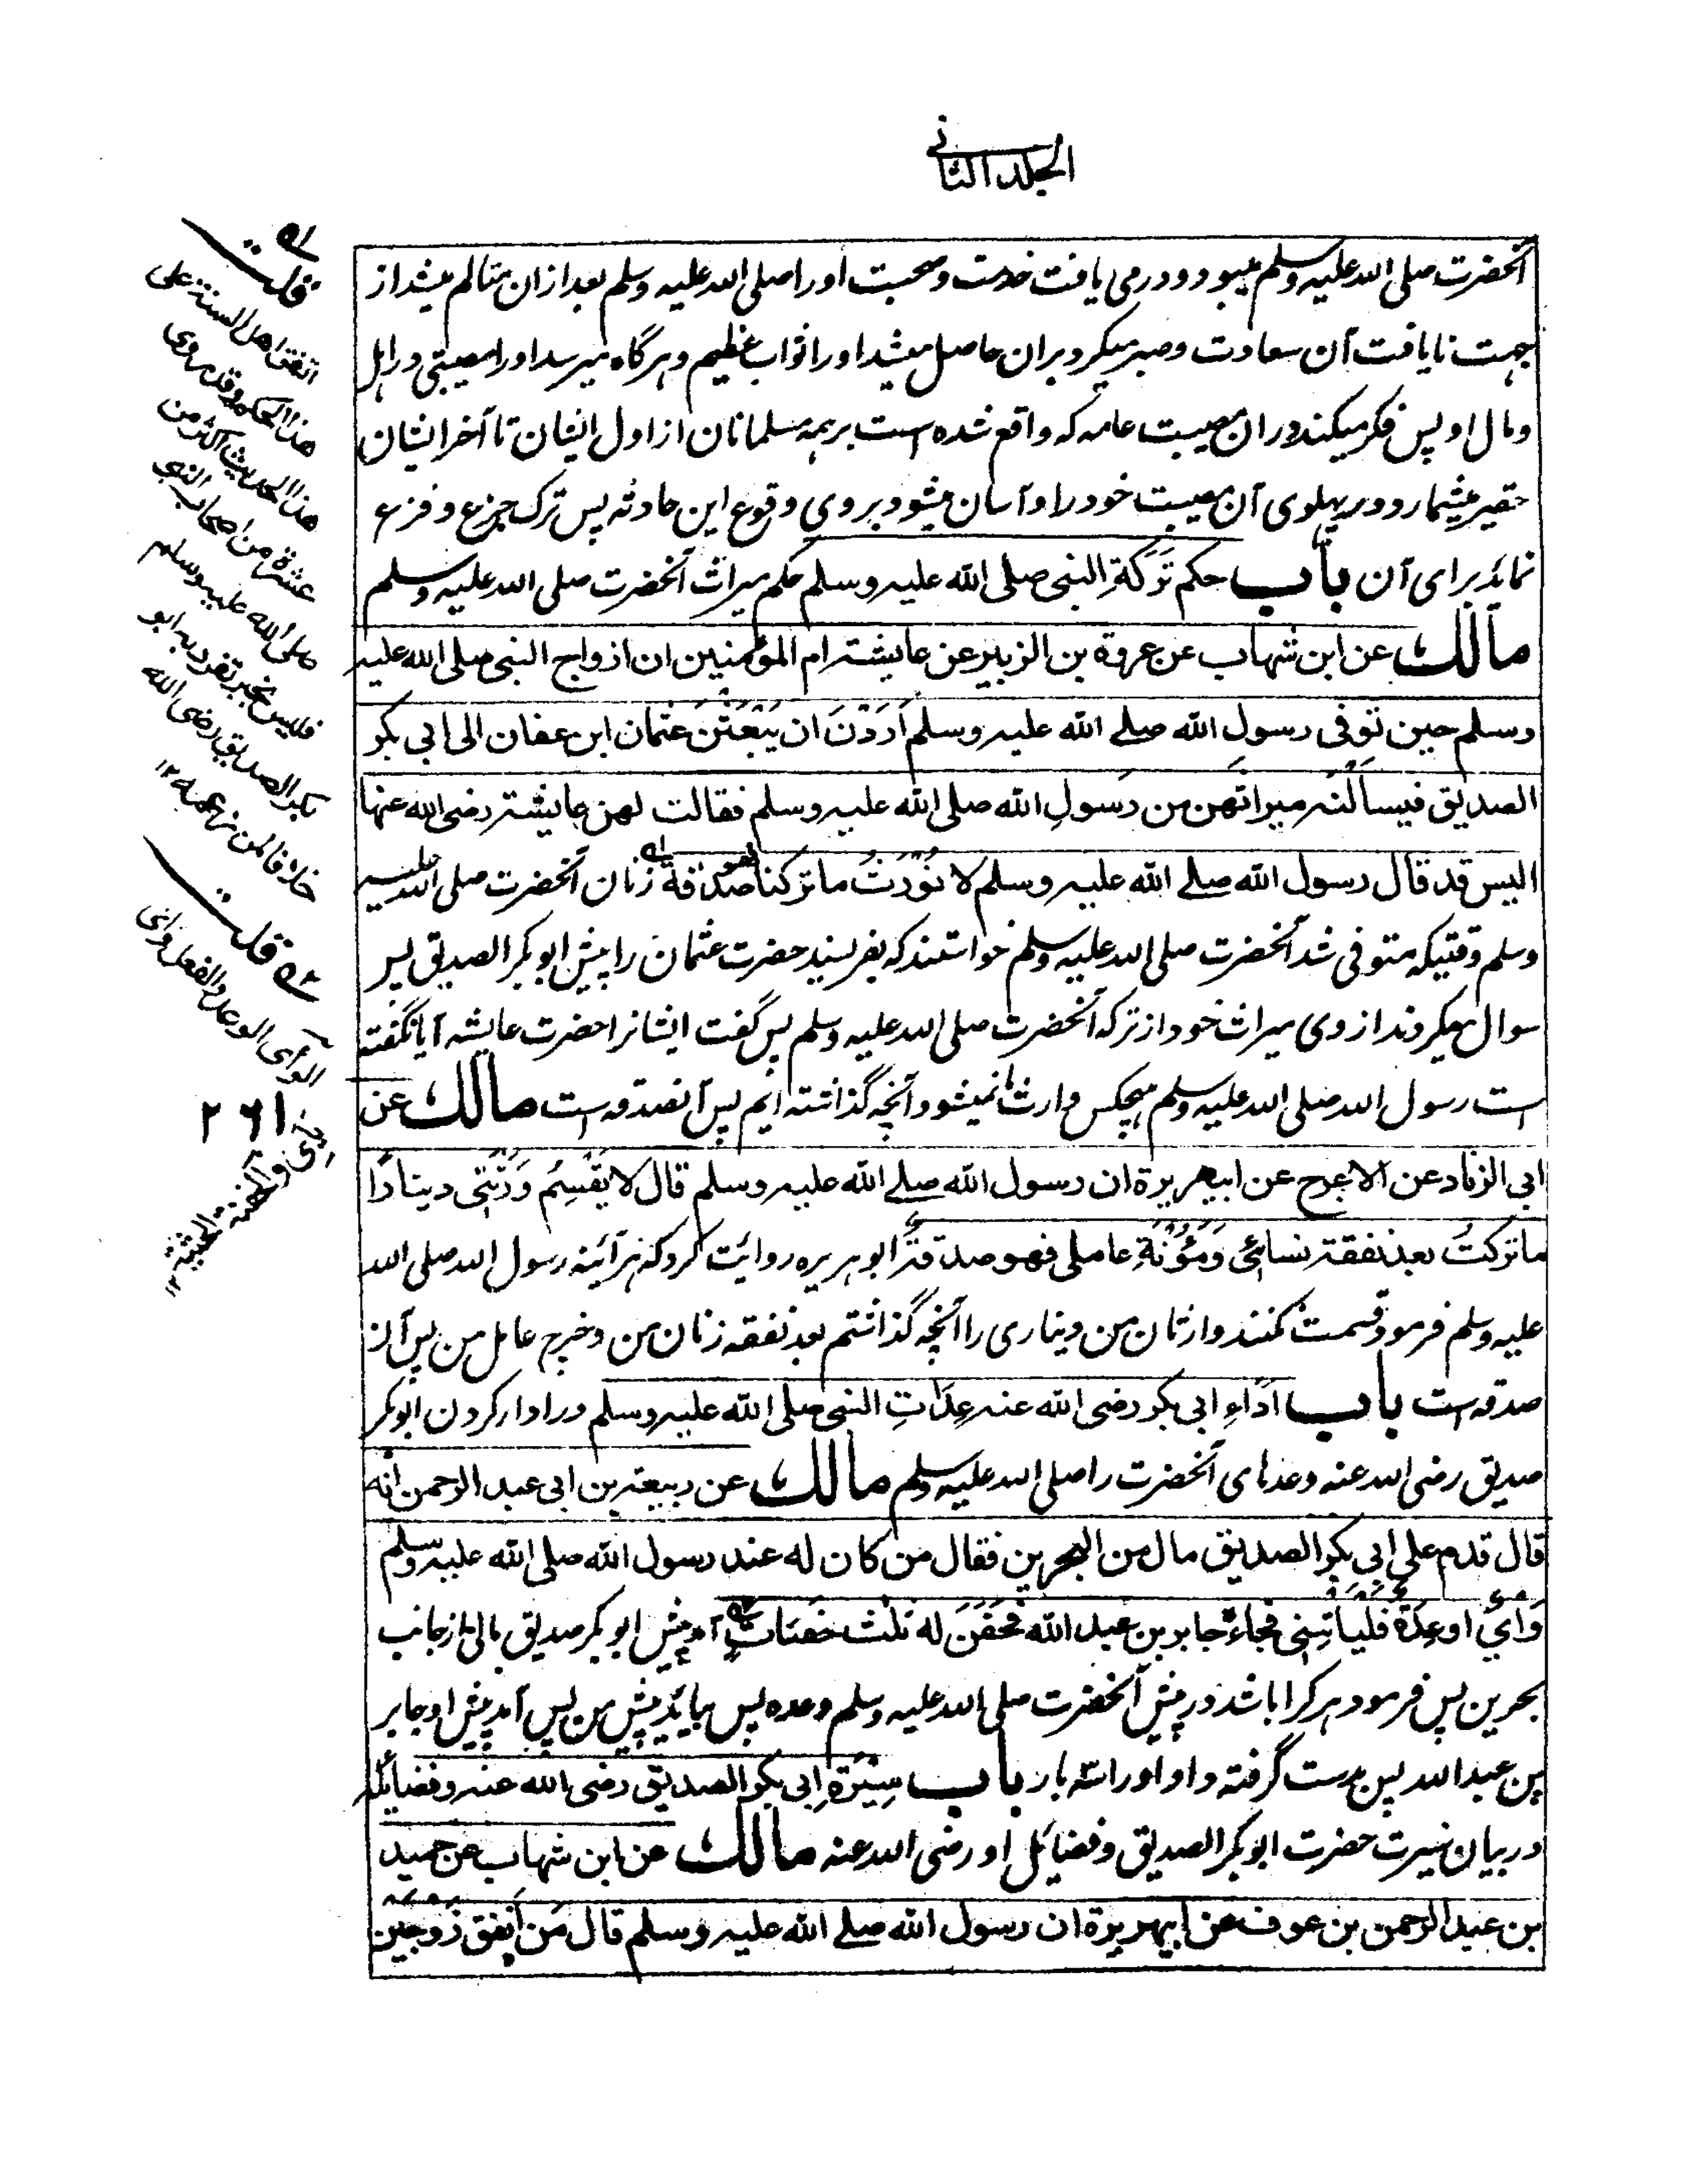 الجلد الثانی
آنحضرت صلی الله علیه وسلم میبود و در می یافت خدمت و صحبت او را صلی الله علیه وسلم بعد از ان متالم میشد از
جهت نایافت آن سعادت و صبر میکرد بران حاصل میشد او را ثواب عظیم و هر گاه میرسد او را مصیبتی در اهل
و مال او پس فکر میکند در ان مصیبت عامه که واقع شده است بر همه مسلمانان از اول ایشان تا آخر ایشان
حقیر میشمارد در پهلوی آن مصیبت خود را و آسان میشود بر وی وقوع این حادثه پس ترک جزع و فزع
نماید برای آن باب حکم تَرَكَةِ النبی صلی الله علیه وسلم حکم میراث آنحضرت صلی الله علیه وسلم
مالك عن ابن شهاب عن عروة بن الزبیر عن عایشة ام المؤمنین ان ازواج النبی صلی الله علیه
وسلم حین توفی رسول الله صلے الله علیه وسلم اَرَدْنَ ان یَبْعَثْنَ عثمان ابن عفان الی ابی بکر
الصدیق فیسألنه میراثهن من رسولِ الله صلی الله علیه وسلم فقالت لهن عایشة رضی الله عنها
الیس قد قال رسول الله صلے الله علیه وسلم لا نُوْرَثُ ما ترکنا فهو صدقة زنان آنحضرت صلی الله علیه
وسلم وقتیکه متوفی شد آنحضرت صلی الله علیه وسلم خواستند که بفرستند حضرت عثمان را پیش ابو بکر الصدیق پس
سوال میکردند از وی میراث خود از ترکه آنحضرت صلی الله علیه وسلم پس گفت ایشانرا حضرت عایشه آیا نگفته
است رسول الله صلی الله علیه وسلم هیچکس وارث ما نمیشود آنچه گذاشته ایم پس آنصدقه است مالك عن
ابی الزناد عن الاعرج عن ابیهریرة ان رسول الله صلے الله علیه وسلم قال لا یَقْسِمُ وَرَثَتِی دینارًا
ما ترکتُ بعد نفقة نسائی وَمَؤُنَةِ عاملی فهو صدقة ابو هریره روایت کرد که هر آئینه رسول الله صلی الله
علیه وسلم فرمود قسمت نکنند وارثان من دیناری را آنچه گذاشتم بعد نفقه زنان من و خرج عامل من پس آن
صدقه است باب اَدَاءِ ابی بکر رضی الله عنه عِدَاتِ النبی صلی الله علیه وسلم در ادا کردن ابو بکر
صدیق رضی الله عنه وعدهای آنحضرت را صلی الله علیه وسلم مالك عن ربیعة بن ابی عبد الرحمن انه
قال قدم علی ابی بکر الصدیق مال من البحرین فقال من کان له عند رسول الله صلی الله علیه وسلم
وَأْیٌ او عِدَةٌ فلیاتِنِی فجاءَ جابر بن عبد الله فَحَفَنَ له ثلث حفنات آمد پیش ابو بکر صدیق مالی از جانب
بحرین پس فرمود هر کرا باشد در پیش آنحضرت صلی الله علیه وسلم وعده پس بیاید پیش من پس آمد پیش او جابر
بن عبد الله پس بدست گرفته داد او را سه بار باب سِیْرَةِ ابی بکر الصدیق رضی الله عنه وفضائله
در بیان سیرت حضرت ابو بکر الصدیق و فضایل او رضی الله عنه مالك عن ابن شهاب عن حمید
بن عبد الرحمن بن عوف عن ابیهریرة ان رسول الله صلے الله علیه وسلم قال مَن اَنفق زَوجَین
۱ه قلت
اتفق اهل السنة علی
هذا الحکم وقد روی
هذا الحدیث اکثر من
عشرة من اصحاب النبی
صلی الله علیه وسلم
فلیس بخبر تفرد به ابو
بکر الصدیق رضی الله
خلافا لمن زعمه ۱۲
۲ه قلت
الوأی الوعد والفعل وأی
۲۶۱
والحفنة الحثیة ۱۲